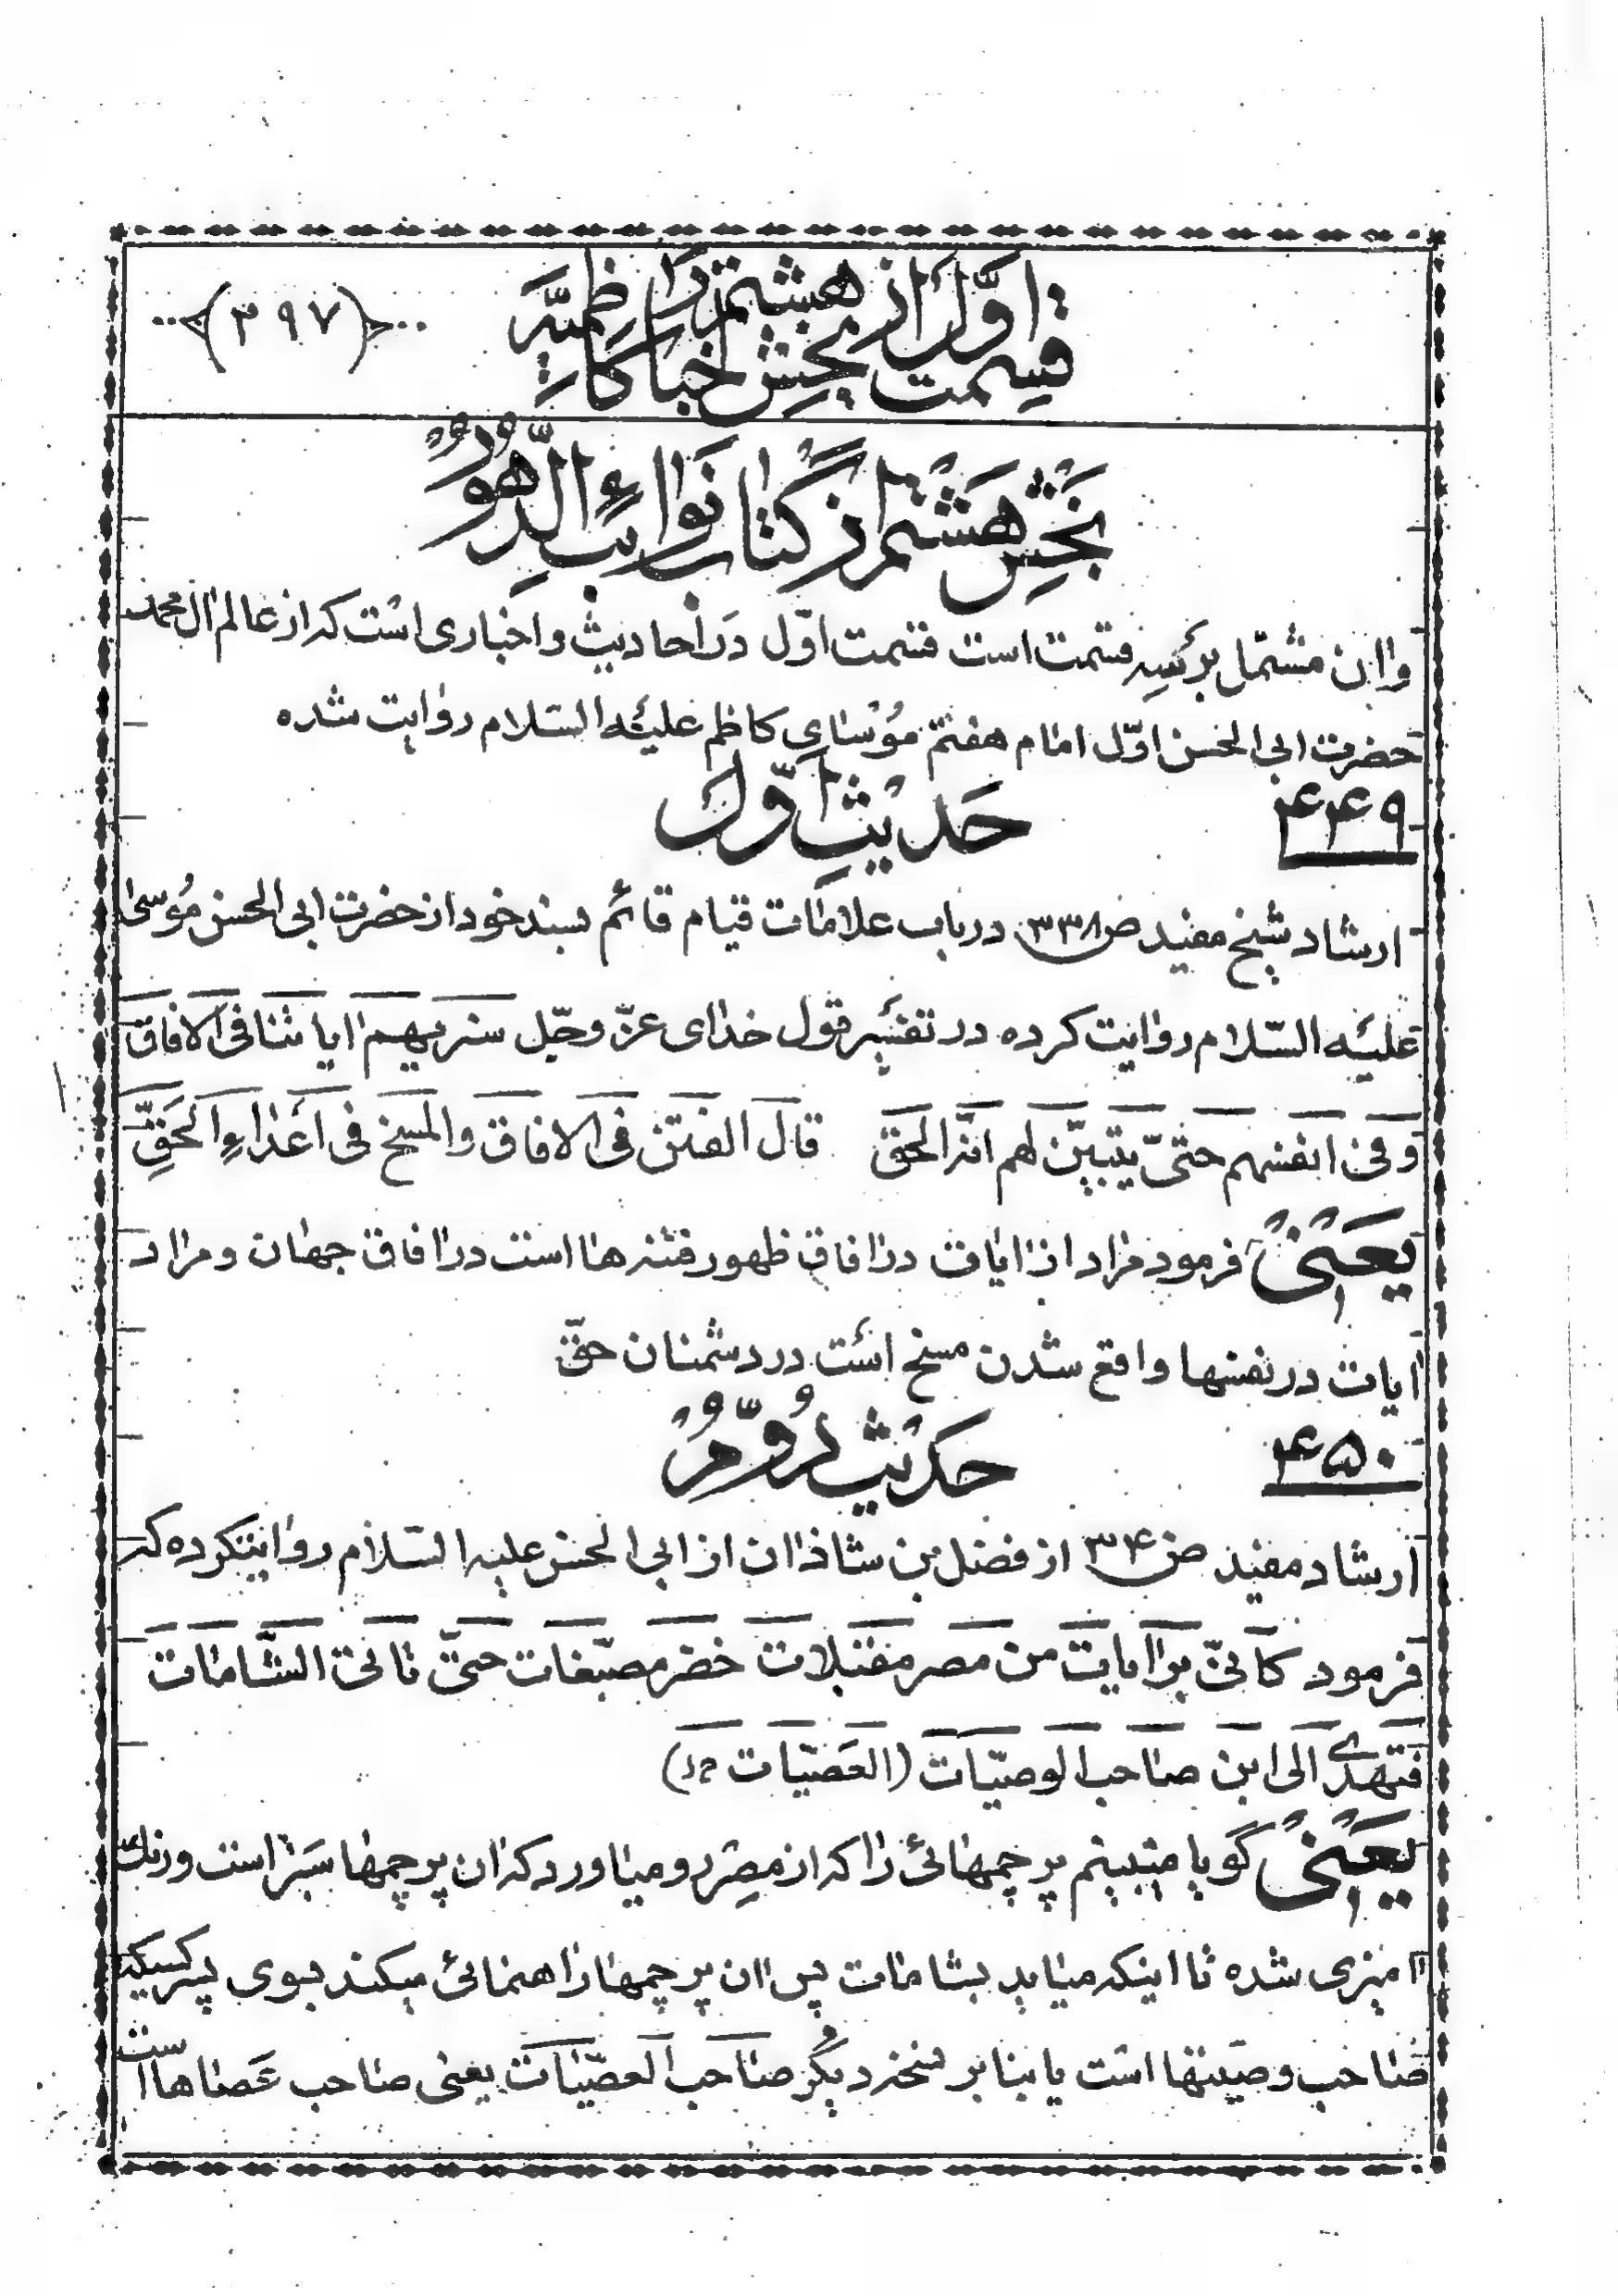 قسمت اوّل از بخش هشتم در اخبار کاظمیّه
(۳۹۷)
بخش هشتم از کتاب نوائب الدّهور
و آن مشتمل بر سه قسمت است قسمت اوّل در احادیث و اخباری است که از عالم آل محمد
حضرت ابی الحسن اوّل امام هفتم موسای کاظم علیه السّلام روایت شده
۴۴۹ حدیث اوّل
ارشاد شیخ مفید ص۳۳۸ در باب علامات قیام قائم بسند خود از حضرت ابی الحسن موسی
علیه السّلام روایت کرده در تفسیر قول خدای عزّ وجّل سنریهم ایاتنا فی الافاق
و فی انفسهم حتیّ یتبیّن لهم انّه الحق قال الفتن فی الافاق والمسخ فی اعداءِ الحَقِّ
یعنی فرمود مراد از ایات در افاق ظهور فتنه ها است در افاق جهان و مراد
ایات در نفسها واقع شدن مسخ است در دشمنان حقّ
۴۵۰ حدیث دوّم
ارشاد مفید ص۳۴ از فضل بن شاذان از ابی الحسن علیه السّلام روایتکرده که
فرمود کأنیّ برایات من مصر مقبلات خضر مصبّغات حتیّ تاتی الشّامات
فتهدی الی ابن صاحب الوصیّات (العَصیّات خ ل)
یعنی گویا میبینم پرچمهائی را که از مصر رو میاورد که ان پرچمها سبز است و رنك
امیزی شده تا اینکه میاید بشامات پس ان پرچمها راهنمائی میکند بسوی پسر کسیکه
صاحب وصیتها است یا بنا بر نسخه دیگر صاحب العصیّات یعنی صاحب عَصاها است